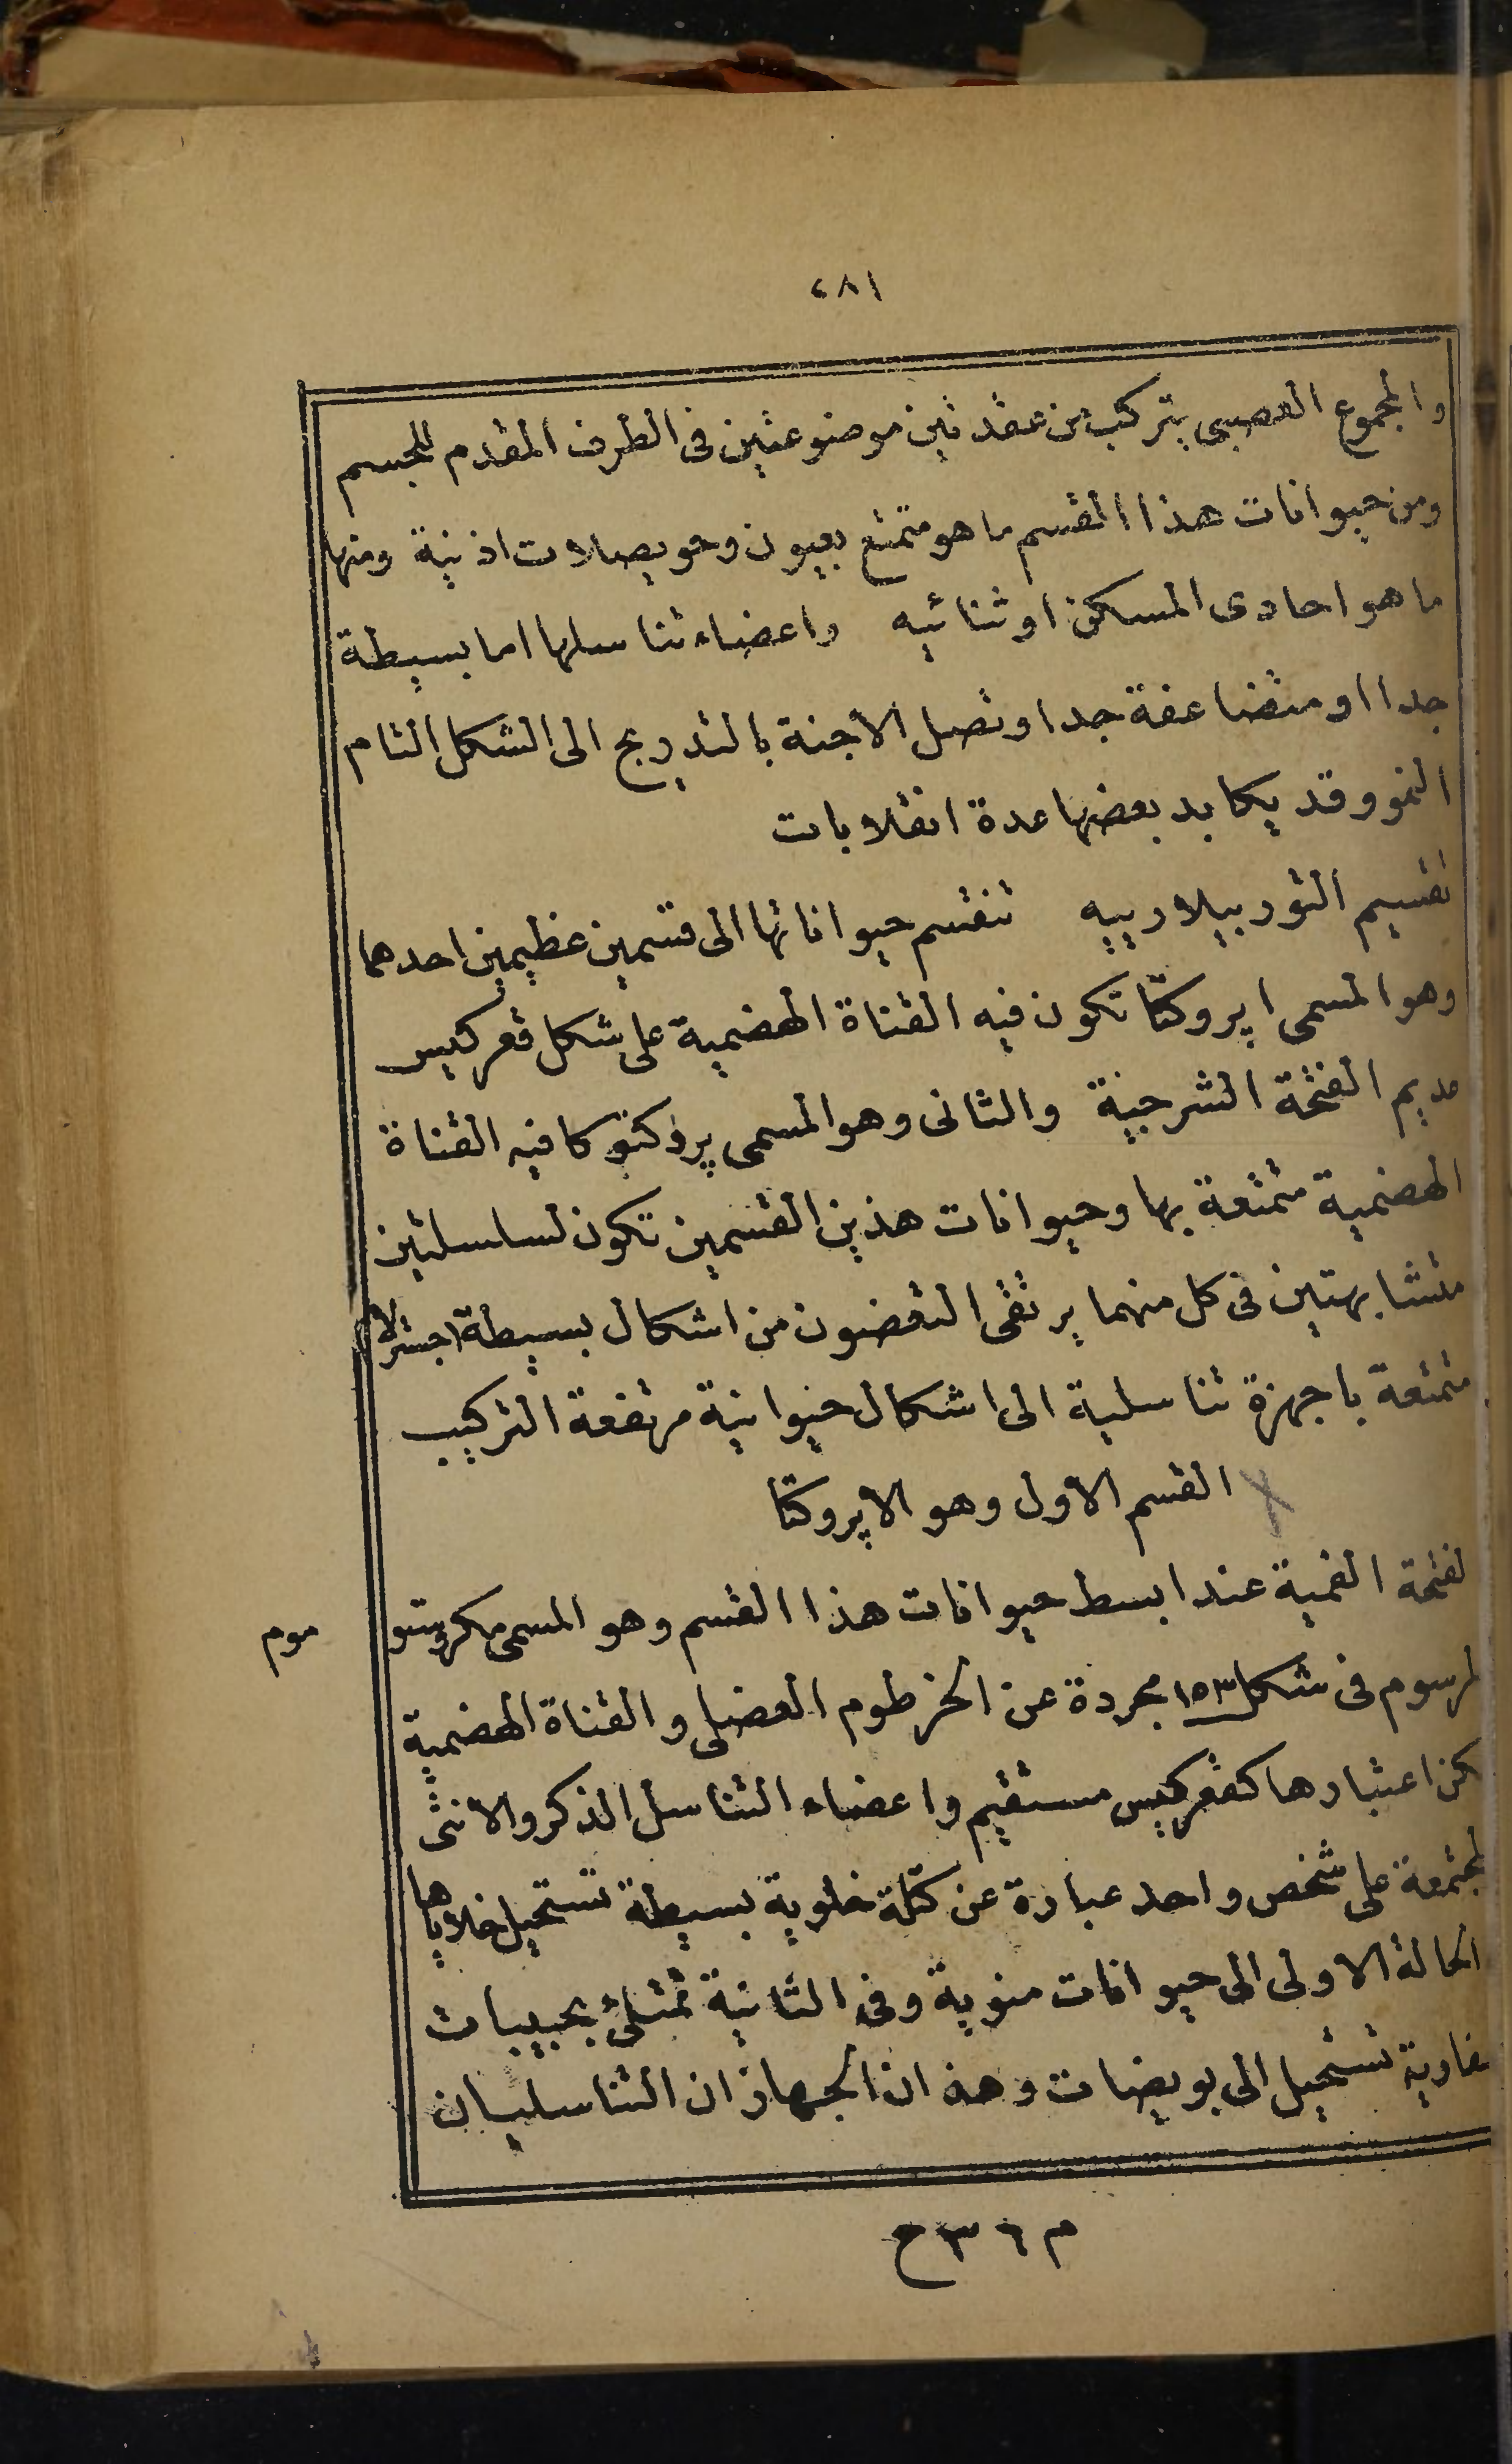 ٢٨١
والمجموع العصبى يتركب من عقدتين موضوعتين فى الطرف المقدم للجسم
ومن حيوانات هذا القسم ما هو متمتع بعيون وحويصلات اذنية ومنها
ما هو احادى المسكن او ثنائيه واعضاء تناسلها اما بسيطة
جدا او متضاعفة جدا وتصل الاجنة بالتدريج الى الشكل التام
النمو وقد يكابد بعضها عدة انقلابات
تقسيم التوربيلارييه تنقسم حيواناتها الى قسمين عظيمين احدهما
وهو المسمى اپروكتا تكون فيه القناة الهضمية على شكل قعر كيس
عديم الفتحة الشرجية والثانى وهو المسمى پروكتوكا فيه القناة
الهضمية متمتعة بها وحيوانات هذين القسمين تكون لسلسلتين
متشابهتين فى كل منهما يرتقى التعضون من اشكال بسيطة
متمتعة باجهزة تناسلية الى اشكال حيوانية مرتفعة التركيب
القسم الاول وهو الاپروكتا
لفتحة الفمية عند ابسط حيوانات هذا القسم وهو المسمى مكروستو
موم
لمرسوم فى شكل ١٥٣ مجردة عن الخرطوم العضلى والقناة الهضمية
كن اعتبارها كقعر كيس مستقيم واعضاء التناسل الذكر والانثى
لمجتمعة على شخص واحد عبارة عن كتلة خلوية بسيطة تستحيل خلاياها
الحالة الاولى الى حيوانات منوية وفى الثانية تمتلئ بحبيبات
فارية تستحيل الى بويضات وهذان الجهازان التناسليان
م ٣٦ ح